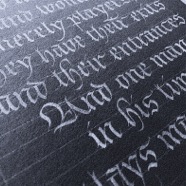 and wome
merely players
they have their exits
and their entrances
And one man
in his time
plays ma